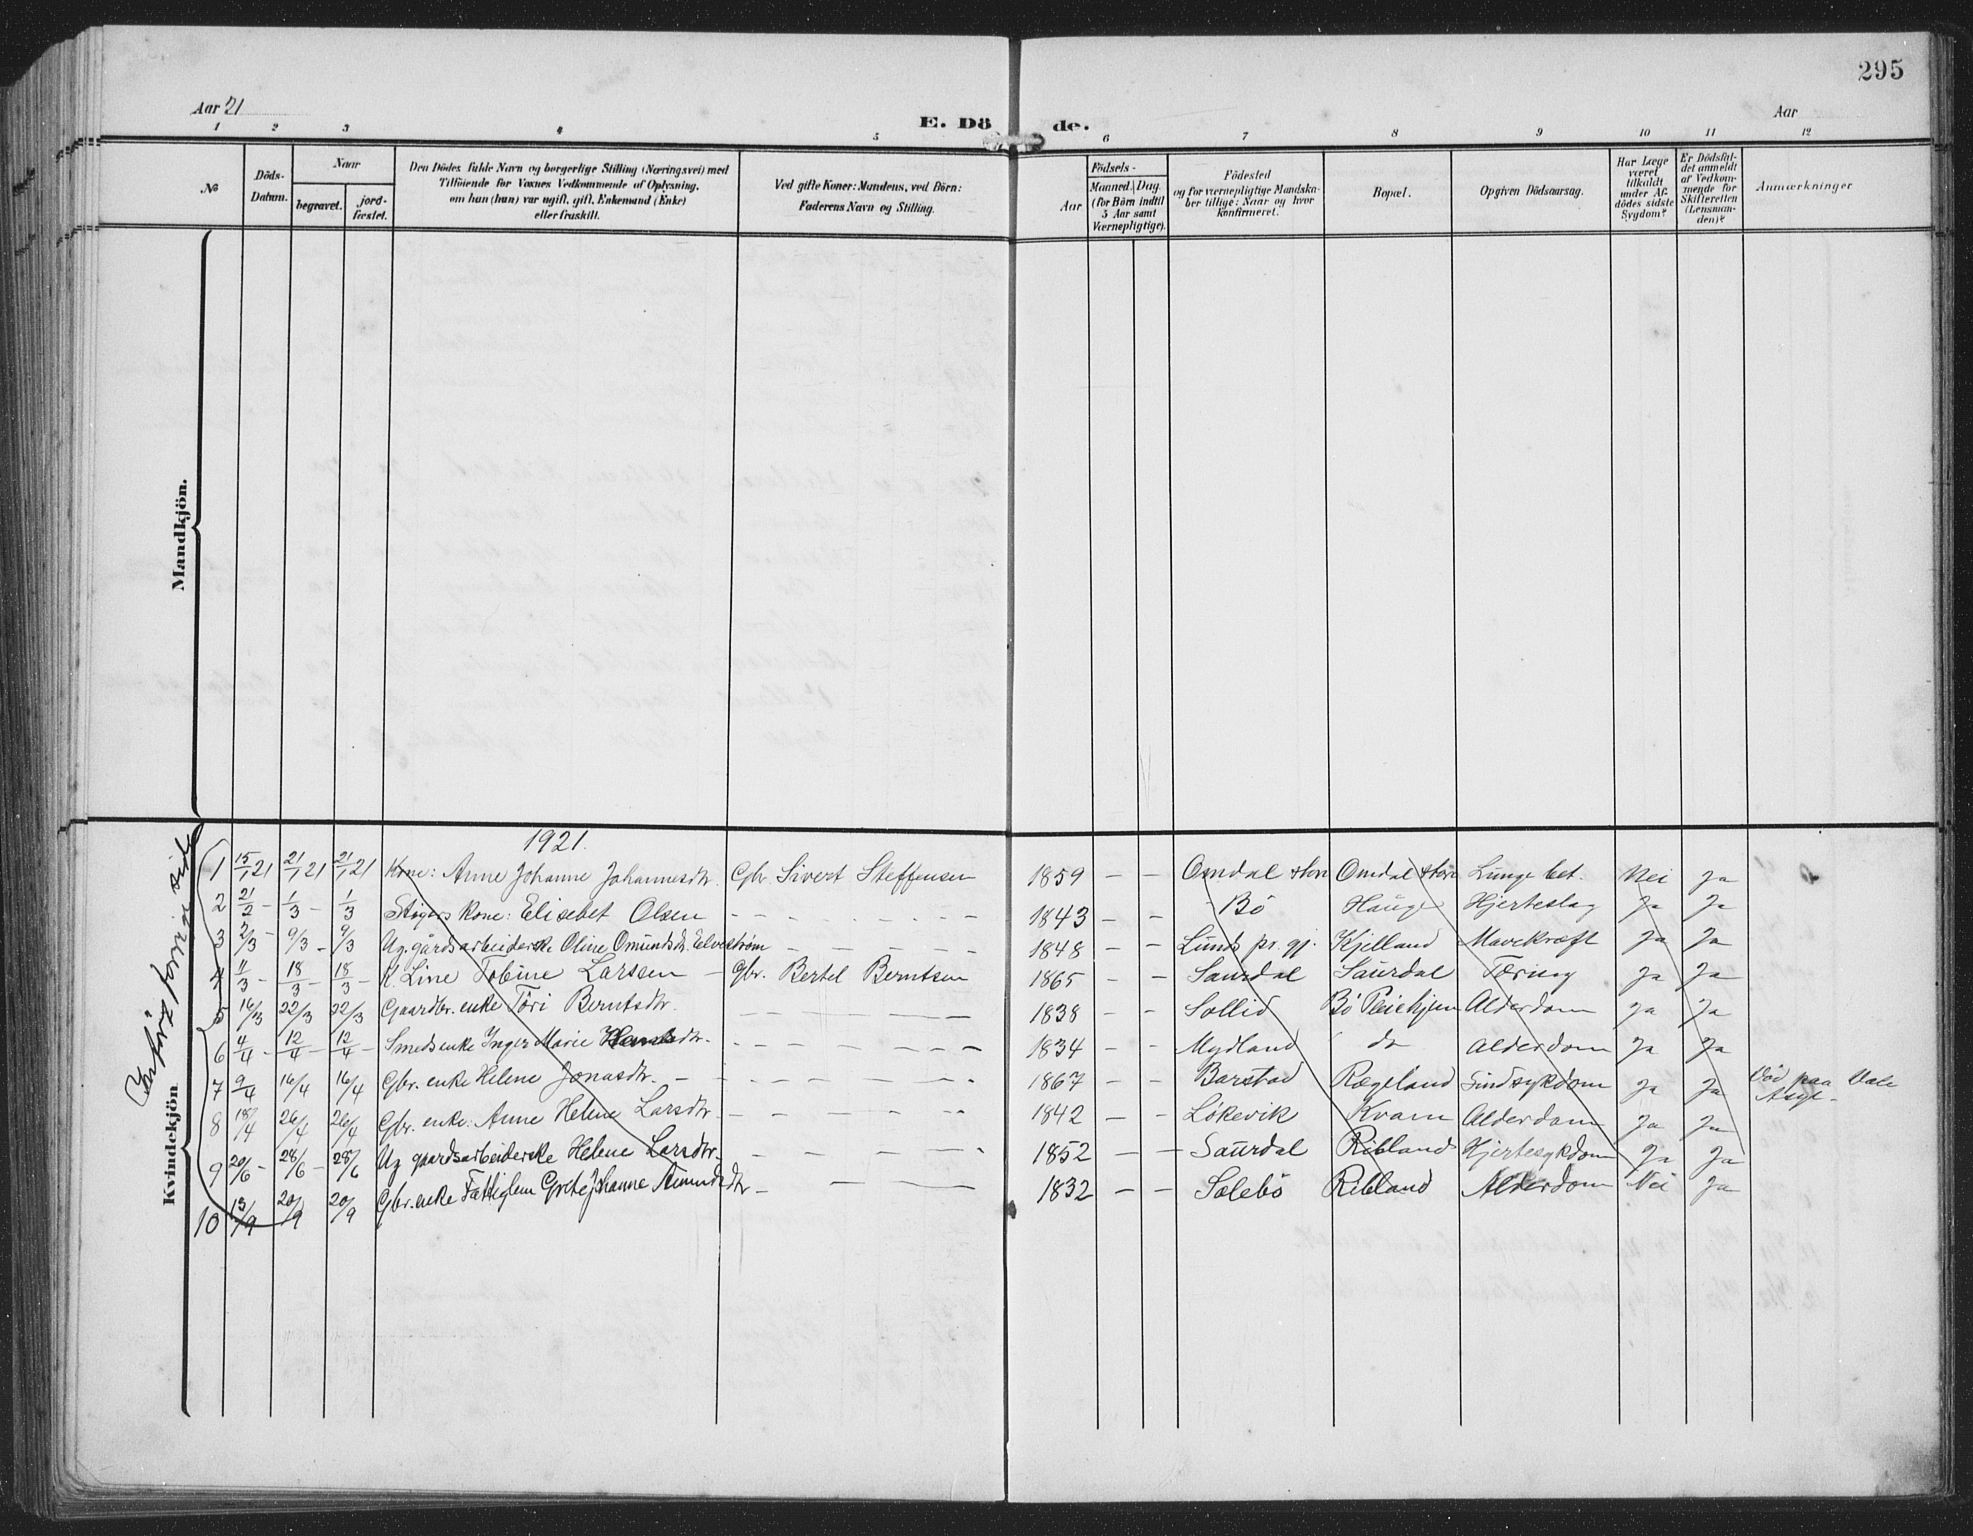 295
Aar 21
Aar
E. Dö de.
1 2 3 4 5 6 7 8 9 10 11 12
№
Döds-
Datum.
Naar
begravet.
jord-
fæstet.
Den Dödes fulde Navn og borgerlige Stilling (Næringsvei) med
Tilföiende for Voxnes Vedkommende af Oplysning,
om han (hun) var ugift, gift, Enkemand (Enke)
eller fraskilt.
Ved gifte Koner: Mandens, ved Börn:
Faderens Navn og Stilling.
Födsels-
Aar
Maaned. Dag
(for Börn indtil
5 Aar samt
Værnepligtige).
Födested
og for værnepligtige Mandska-
ber tillige: Naar og hvor
konfirmeret.
Bopæl.
Opgiven Dödsaarsag.
Har Læge
været
tilkaldt
under Af-
dödes sidste
Sygdom?
Er Dödsfal-
det anmeldt
af Vedkom-
mende for
Skifteretten
(Lensman-
den)?
Anmærkninger
Mandkjön.
Kvindekjön
Indført forrige side
1921.
1 15/1 21 21/1 21 21/1 21 Kone: Anne Johanne Johannesdtr. Gbr. Sivert Steffensen 1859 – – Omdal store Omdal store Lunge bet. Nei Ja
2 21/2 – 1/3 – 1/3 kone: Elisebet Olsen – – – 1843 – – Bö Hauge Hjerteslag Ja Ja
3 2/3 – 9/3 – 9/3 Ug. gårdsarbeiderske Oline Omundsdtr. Elvestrøm – – – 1848 – – Lunds pr. gj. Kjelland Mavekræft Ja Ja
4 11/3 – 18/3 – 18/3 – K. Line Tobine Larssen – Gbr. Bertel Berntsen 1865 – – Saurdal Saurdal Tæring Ja Ja
5 16/3 22/3 22/3 Gaardbr. enke Töri Berntsdtr. – – – 1838 – – Sollid Bö Pleiehjem Alderdom Ja Ja
6 4/4 – 12/4 – 12/4 – Smeds enke Inger Marie Hansdtr. – – – 1834 – – Mydland do Alderdom Ja Ja
7 9/4 16/4 16/4 Gbr. enke Helene Jonasdtr. – – – 1867 – – Barstad Rægeland Sindsykdom Ja Ja Död paa Dale Asyl –
8 18/4 26/4 26/4 Gbr. enke: Anne Helene Larsdtr. – – – 1842 – – Løkevik Kvam Alderdom Ja Ja
9 20/6 – 28/6 – 28/6 Ug gaardsarbeiderske Helene Larsdtr. – – – 1852 – – Saurdal Ribland Hjertesykdom Ja Ja
10 13/9 20/9 20/9 Gbr. enke Fattiglem Grete Johanne Aamundsdtr – – – 1832 – – Solebö Ribland Alderdom Nei Ja